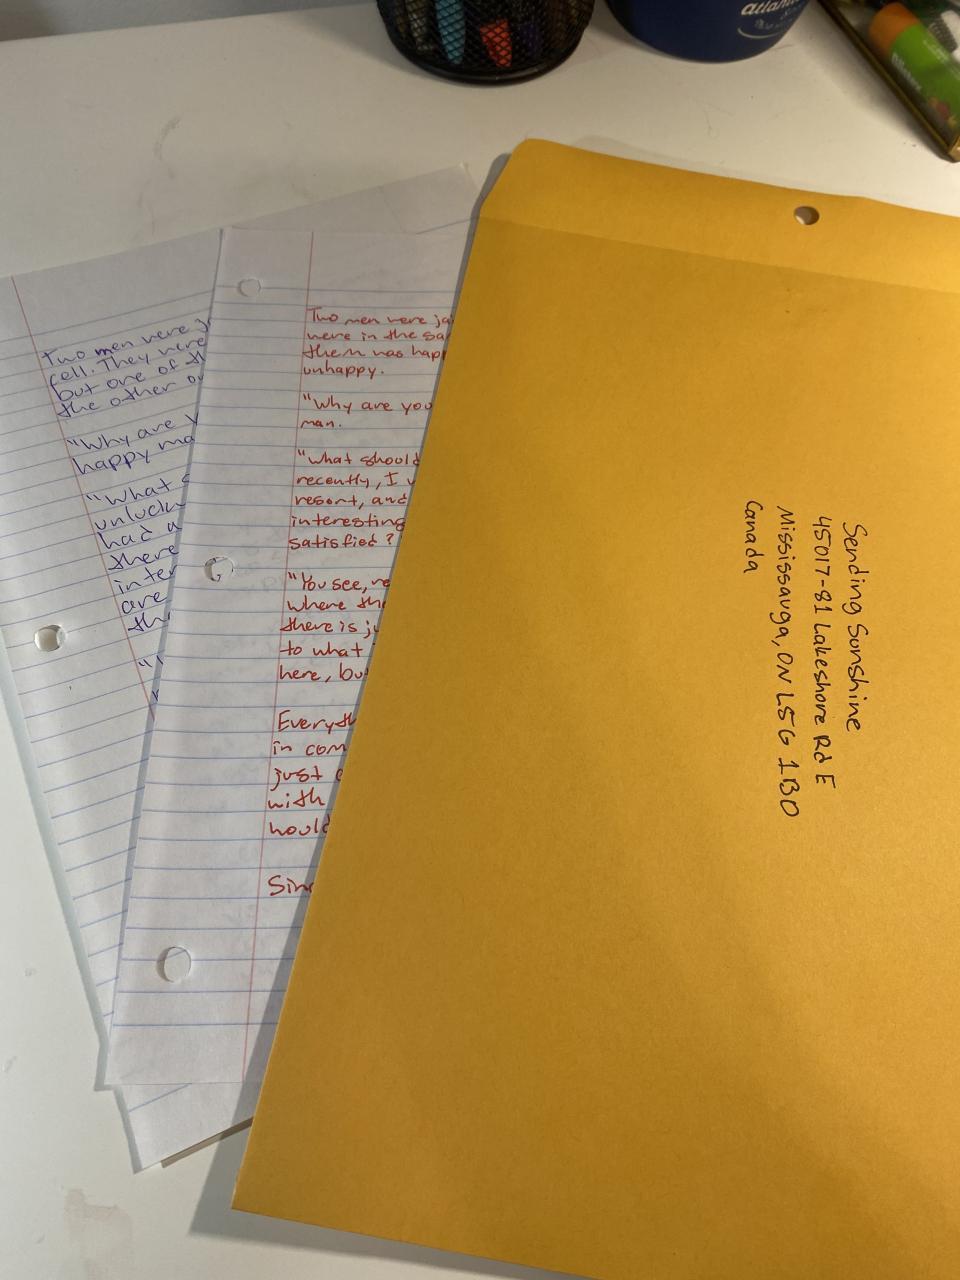 Two men were
cell. They were
but one of
the other
"Why are
happy
"What
unlucky
had a
there
are
Two men were
were in the
them was
unhappy.
"Why are you
man.
"What should
recently, I
resort, and
interesting
satisfied?
"You see,
where
there is
to what
here,
in
just
with
would
Sending Sunshine
45017-81 Lakeshore Rd E
Mississauga, ON L5G 1B0
Canada